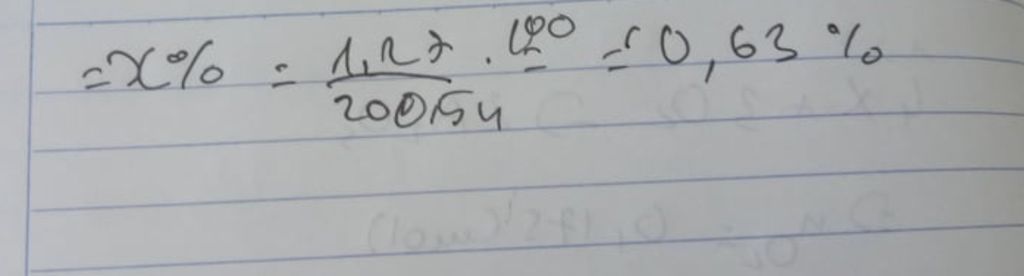 = x% = 1,27 / 200,54 . 100 = 0,63 %